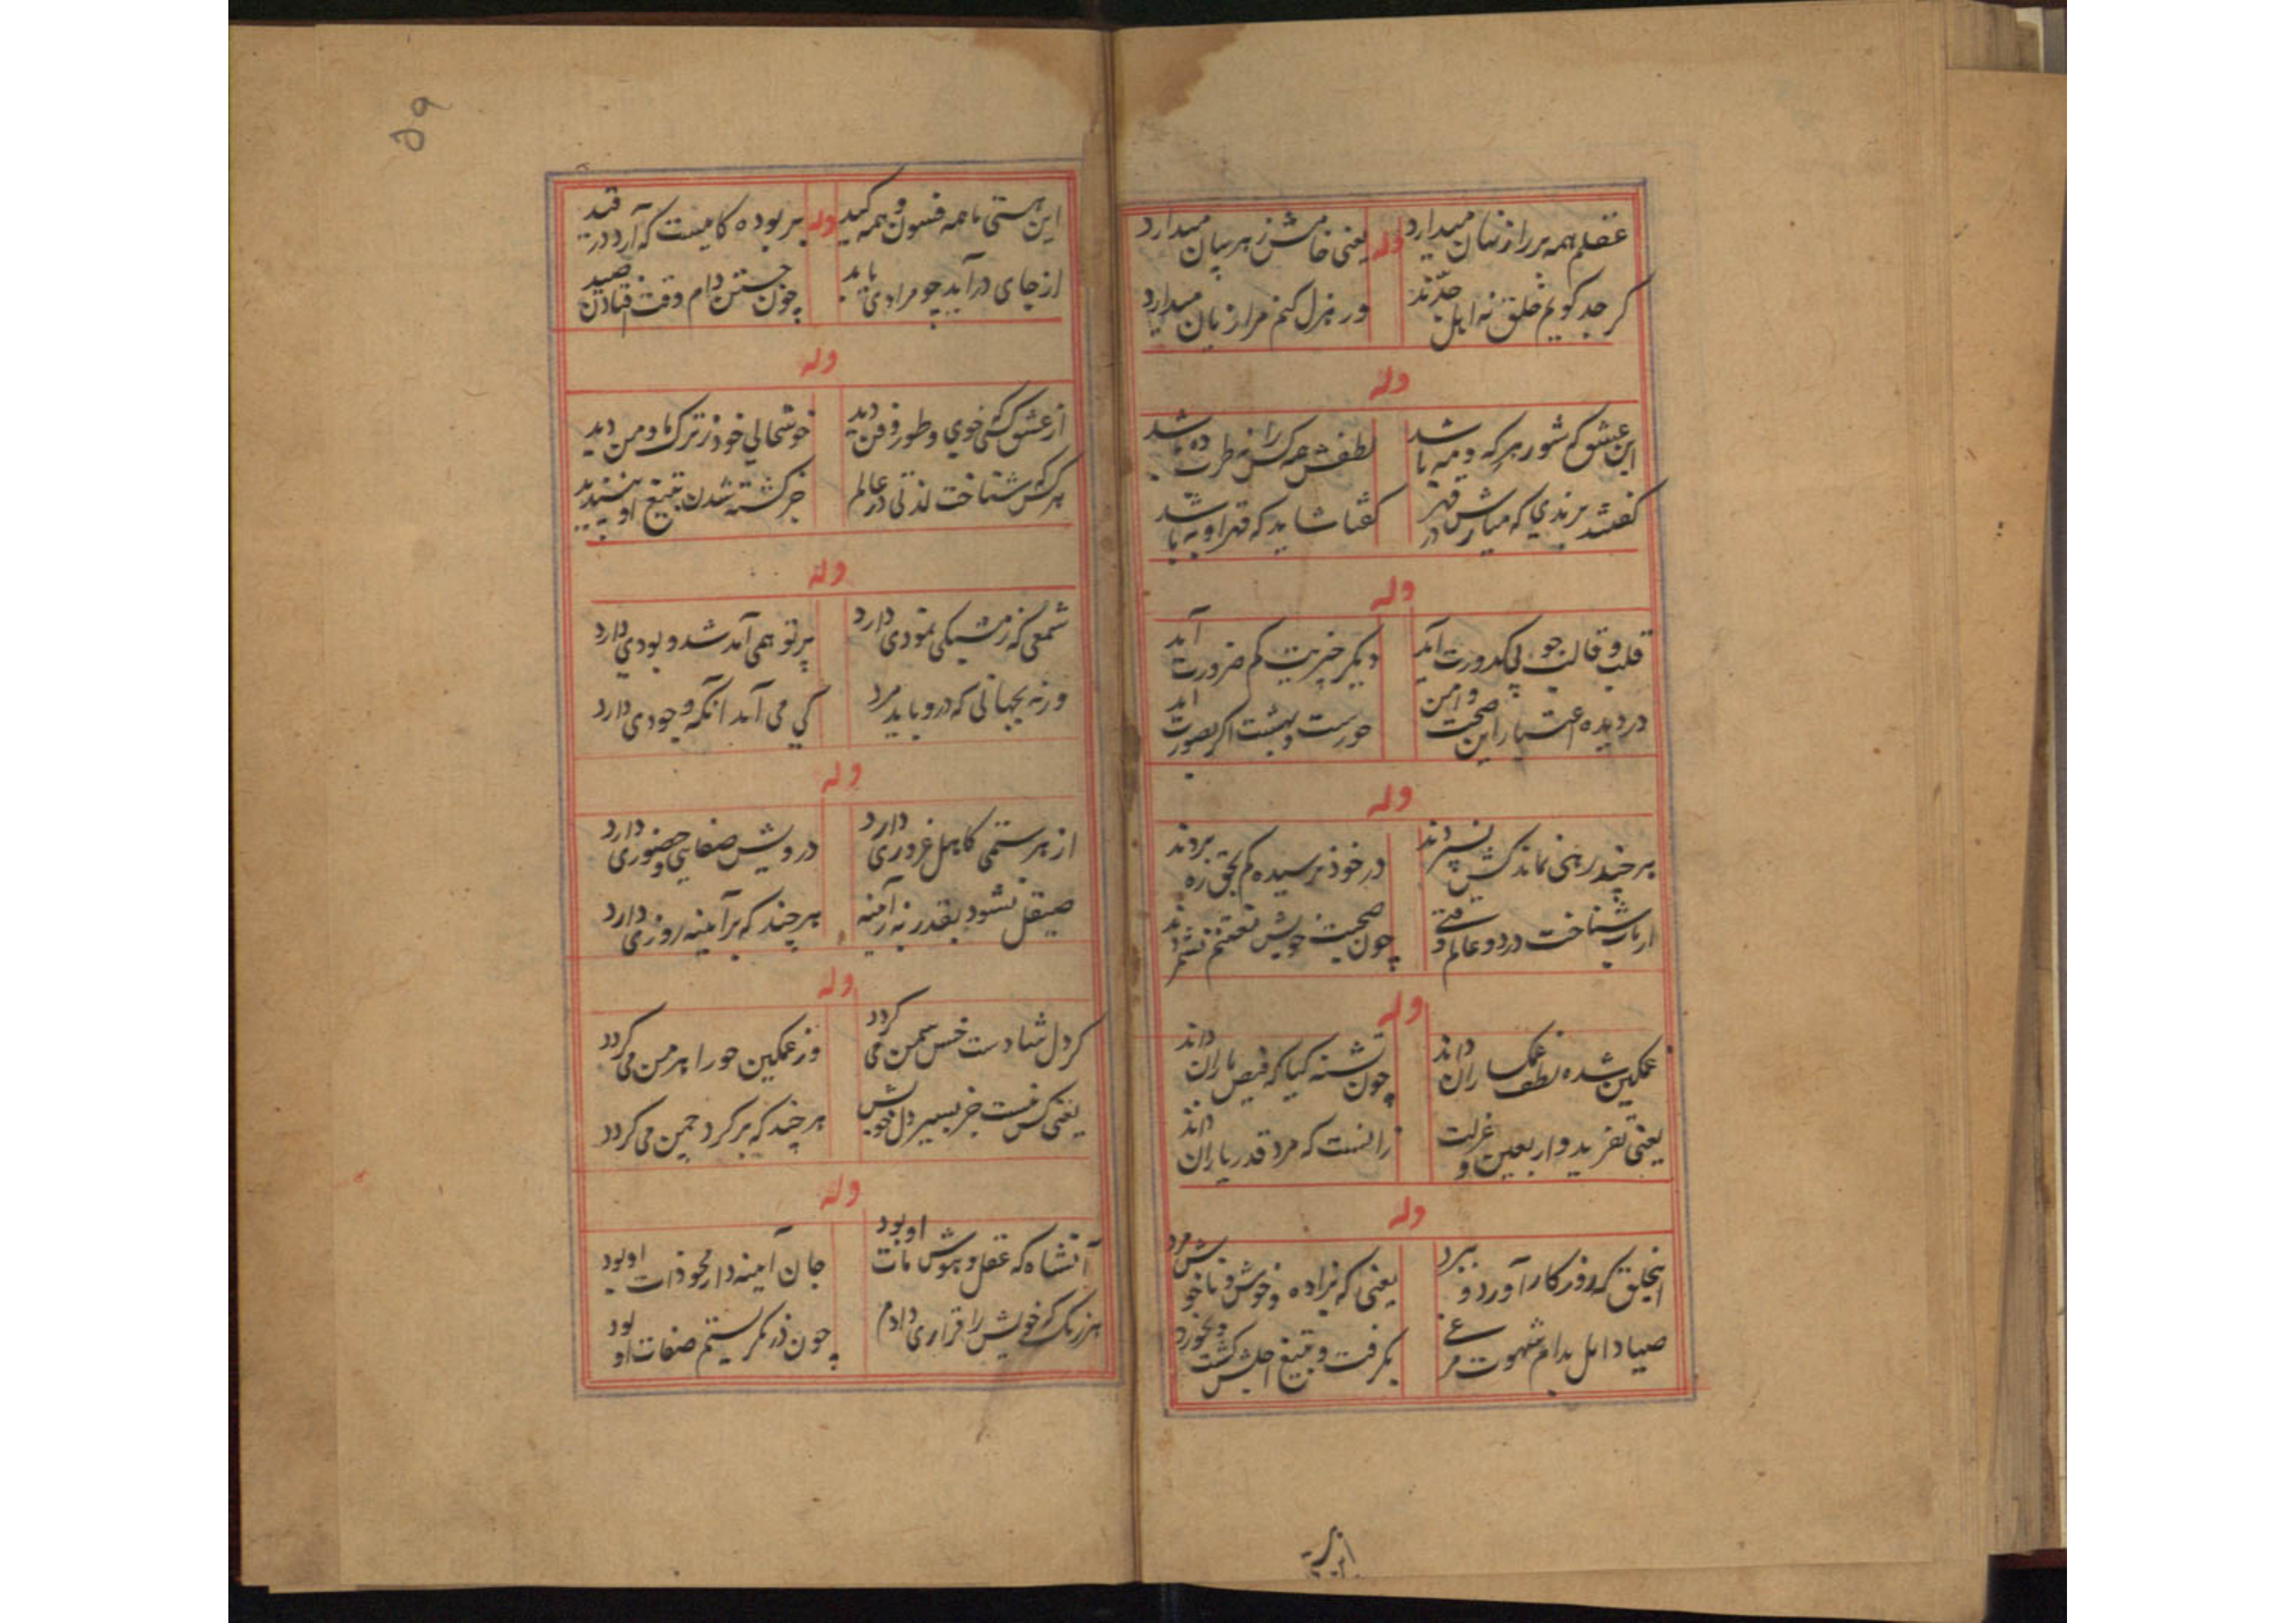 عقلم همه بر راز نهان میدارد وله یعنی خامش ز هر بیان میدارد
کر جد کویم خلق نه اهل جدّند ور هزل کنم مرا زیان میدارد
وله
این عشق که شور هر که و مه باشد لطفش همه کس را نظرت ده باشد
کفتا شاید که قهر او به باشد
وله
قلب و قالب جو بی کدورت آید دیکر خبریت کم ضرورت آید
در دیده اعتبار این صحت و امن حورست و بهشت اکر بصورت آید
وله
هر چند رهی نماند کش نسپردند در خود نرسیده کم بحق ره بردند
ارباب شناخت در دو عالم وقتی چون صحبت خویش نعمتم نشمردند
وله
غمکین شده لطف غمکساران داند چون تشنه کیا که فیض باران داند
یعنی تفرید و اربعین و عزلت زانست که مرد قدر یاران داند
وله
اینخلق که روزکار آورد و ببرد یعنی که بزاده و خوش و ناخوش مرد
صیاد امل بدام شهوت مرغی بکرفت و بتیغ اجلش کشت و بخورد
این
۵۹
این هستی ما همه فسون و همه کید وله بر بوده کامیست که آرد در قید
از جای درآید چو مرادی یابد چون جستن دام وقت افتادن صید
وله
از عشق کسی خوی و طور و فن دید خوشحالی خود ز ترک ما و من دید
هر کش شناخت لذتی در عالم جز کشته شدن بتیغ او نپسندید
وله
شمعی که ز مشبکی نمودی دارد پرتو همی آمد شد و بودی دارد
ورنه بجهانی که درو باید مرد کی می آید آنکه وجودی دارد
وله
از هر ستمی کاهل غروری دارد درویش صفایی و حضوری دارد
صیقل نشود بقدر نه آینه هر چند که بر آیینه روزی دارد
وله
کر دل شادست خس سمن می کردد ور غمکین حورا اهرمن می کردد
یعنی کس نیست جز بسیر دل خویش هر چند که بر کرد چمن می کردد
وله
آنشاه که عقل و هوش مات او بود جان آینه دار محو ذات او بود
هر رنک که خویش را قراری دادم چون در نکریستم صفات او بود